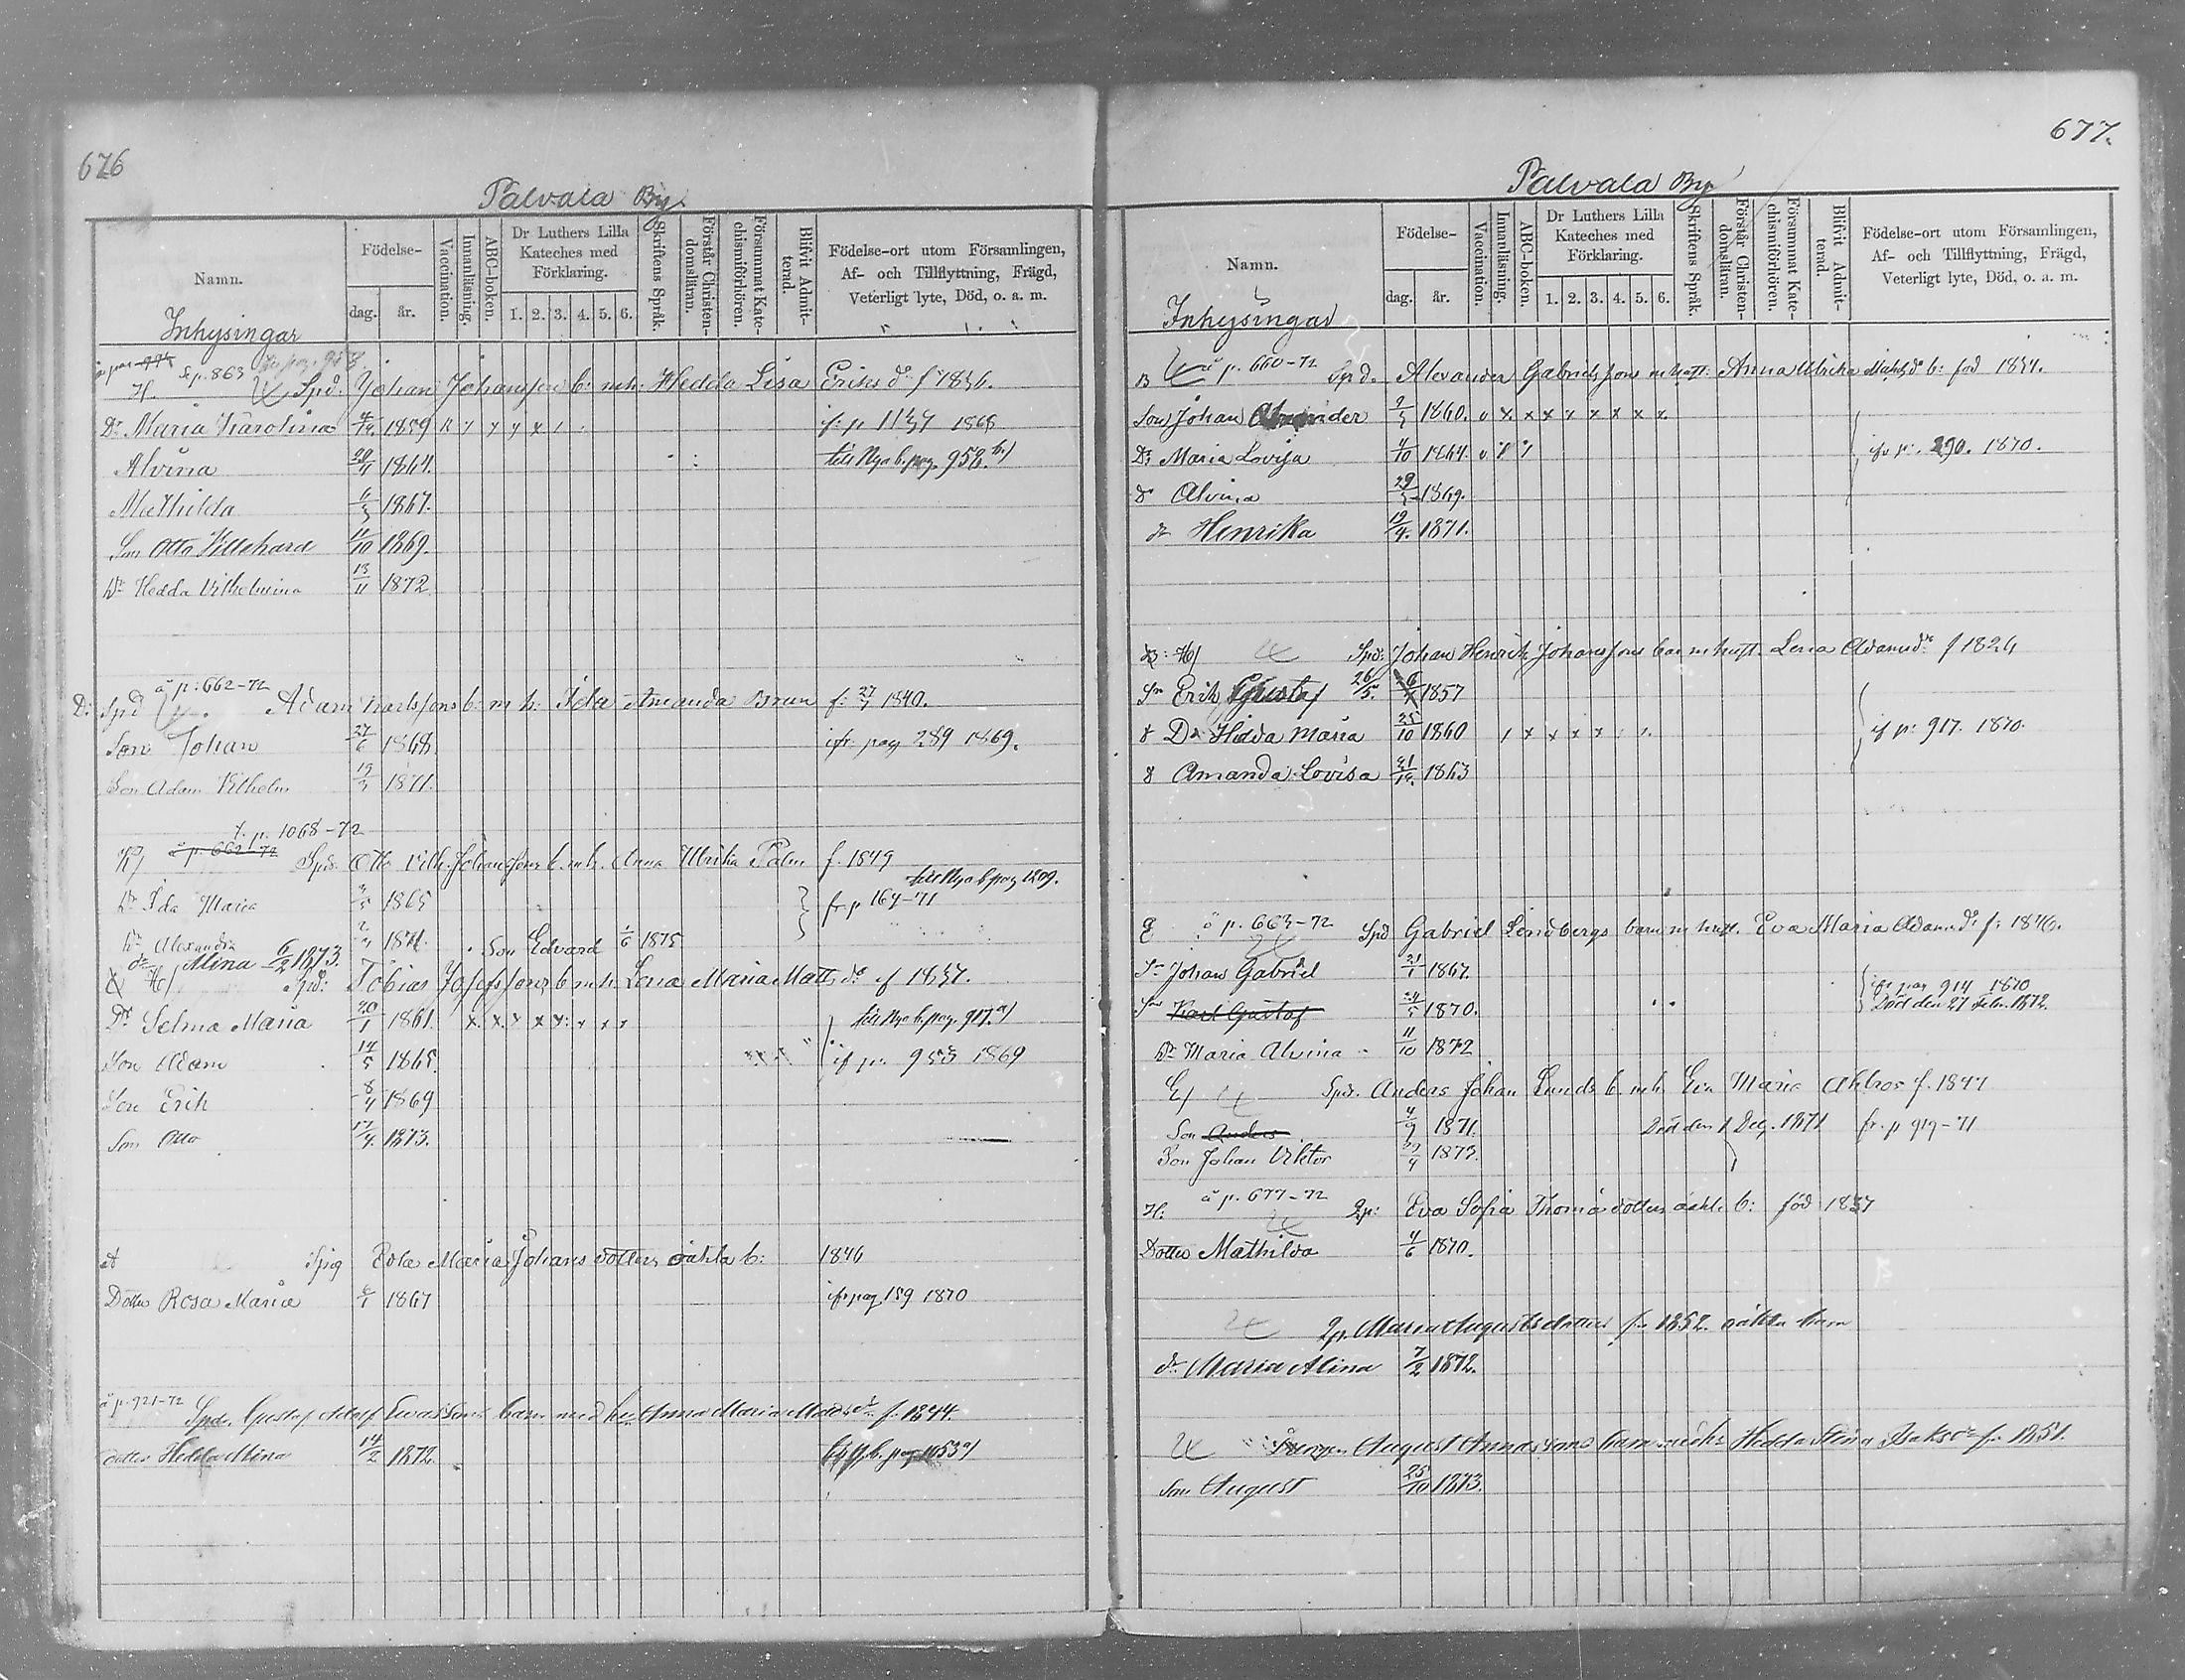 676
Palvala By.
Namn.
Födelse-
dag.
år.
Vaccination.
Innanläsning.
ABC-boken.
Dr Luthers Lilla Kateches med Förklaring.
1. 2. 3. 4. 5. 6.
Skriftens Språk.
Förstår Christendomsläran.
Försummat Katechismiförhören.
Blifvit Admitterad.
Födelse-ort utom Församlingen, Af- och Tillflyttning, Frägd, Veterligt lyte, Död, o. a. m.
Inhysingar
p. 863
H. Spd: Johan Johanssons b: m h: Hedda Lisa Eriks dr f 1836.
Dr Maria Karolina 1859
1868
Alvina 1864.
till Nya b. pag. 952.
Mathilda 1867.
Son Otto Villehard 11/10 1869.
Dr Hedda Vilhelmina 13/11 1872
å p: 662-72
D: Spd Adam Karlssons b: m h: Ida Amanda Brun f: 1840.
Son Johan 27/6 1868.
ifr. pag 289 1869.
Son Adam Vilhelm 19/3 1871.
t. p. 1068-72
å p. 662-72
Spd. Otto Vilh. Johanssons b. m h. Anna Ulrika Palm f. 1849
till Nya b pag 1209.
Dr Ida Maria 1865
fr p 164-71
Dr Alexandra 1871.
Son Edvard 1/6 1875
dr Alina 6/2 1873.
Spd: Tobias Josefssons b m h Lena Maria Matts dr f 1837.
Dr Selma Maria 20/1 1861.
till Nya b. pag. 917.
Son Adam 14/5 1865.
if p: 953 1869
Son Erik 8/4 1869
Son Otto 17/4 1873.
Spig Eva Maria Johans dotters oäkta b: 1846
Dotter Rosa Maria 1867
ifr pag 159 1870
å p. 921-72
Spd. Gustaf Adolf Evassons barn med hu Anna Maria Matts dr f. 1844.
dotter Hedda Alina 14/2 1872.
677.
Palvala By
Namn.
Födelse-
dag.
år.
Vaccination.
Innanläsning.
ABC-boken.
Dr Luthers Lilla Kateches med Förklaring.
1. 2. 3. 4. 5. 6.
Skriftens Språk.
Förstår Christendomsläran.
Försummat Katechismiförhören.
Blifvit Admitterad.
Födelse-ort utom Församlingen, Af- och Tillflyttning, Frägd, Veterligt lyte, Död, o. a. m.
Inhysingar
å p. 660-72
B Spd. Alexander Gabrielssons m hust: Anna Ulrika Matts dr b: föd 1834.
Son Johan 1860.
Dr Maria Lovisa 4/10 1864.
ifr p: 290. 1870.
dr Alvina 1869.
dr Henrika 19/4. 1871.
Spd: Johan Henrik Johanssons barn m hust. Lena Adams dr f 1824
Sn Erik Gustaf 26/5. 1857
Dr Hedda Maria 25/10 1860
if p: 917. 1870.
Amanda Lovisa 1863
å p. 663-72
Spd Gabriel Lindbergs barn m hust. Eva Maria Adams dr f: 1846.
Sn Johan Gabriel 21/1 1867.
ifr pag 914 1870
Son Karl Gustaf 24/5 1870.
Död den 27 Febr. 1872.
Dr Maria Alvina 11/10 1872
E) Spd. Anders Johan Lunds b. m h. Eva Maria Ahlros f. 1847
Son Anders 4/9 1871.
Död den 1 Dec. 1871
fr. p 919-71
Son Johan Viktor 1873.
å p. 677-72
H: Qp: Eva Sofia Thomas dotters oäkta b: föd 1837
Dotter Mathilda 4/6 1870.
Qp. Maria Augusts dotters f. 1852. oäkta barn
dr Maria Alina 7/2 1872.
August Anderssons barn med h: Hedda Stina Isaks dr f. 1851.
Son August 25/10 1873.